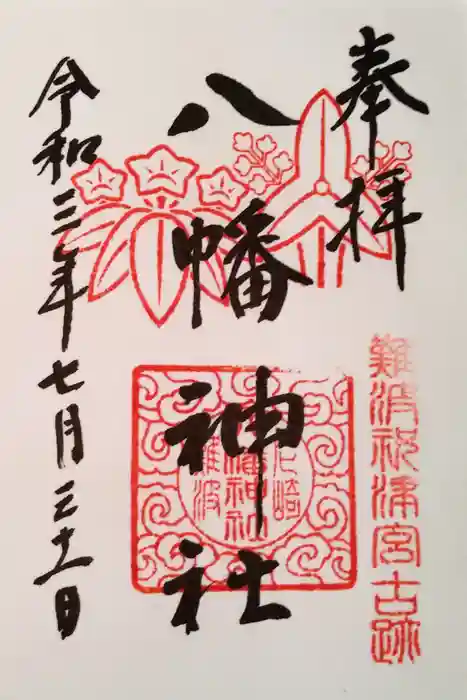 奉拝
難波祝津宮古跡
八幡神社
尼崎
難波
令和三年七月三十一日